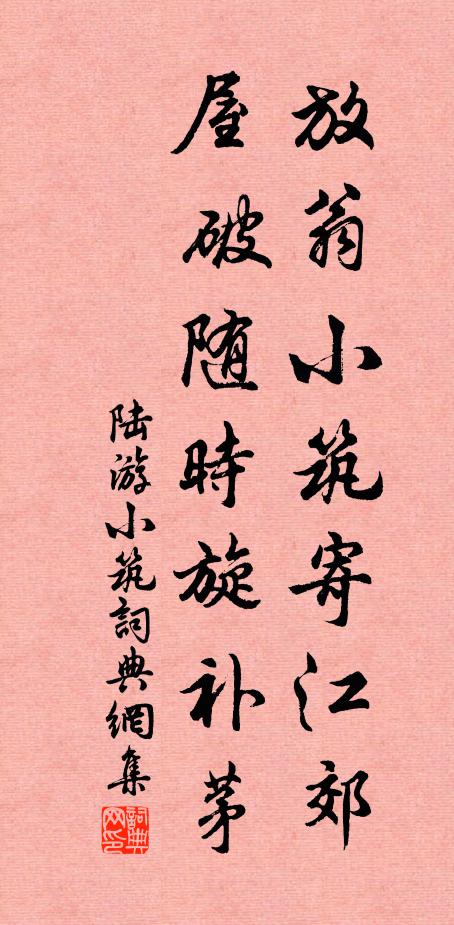 放翁小筑寄江郊
屋破随時旋补茅
陆游小筑詞典網集
詞典网印